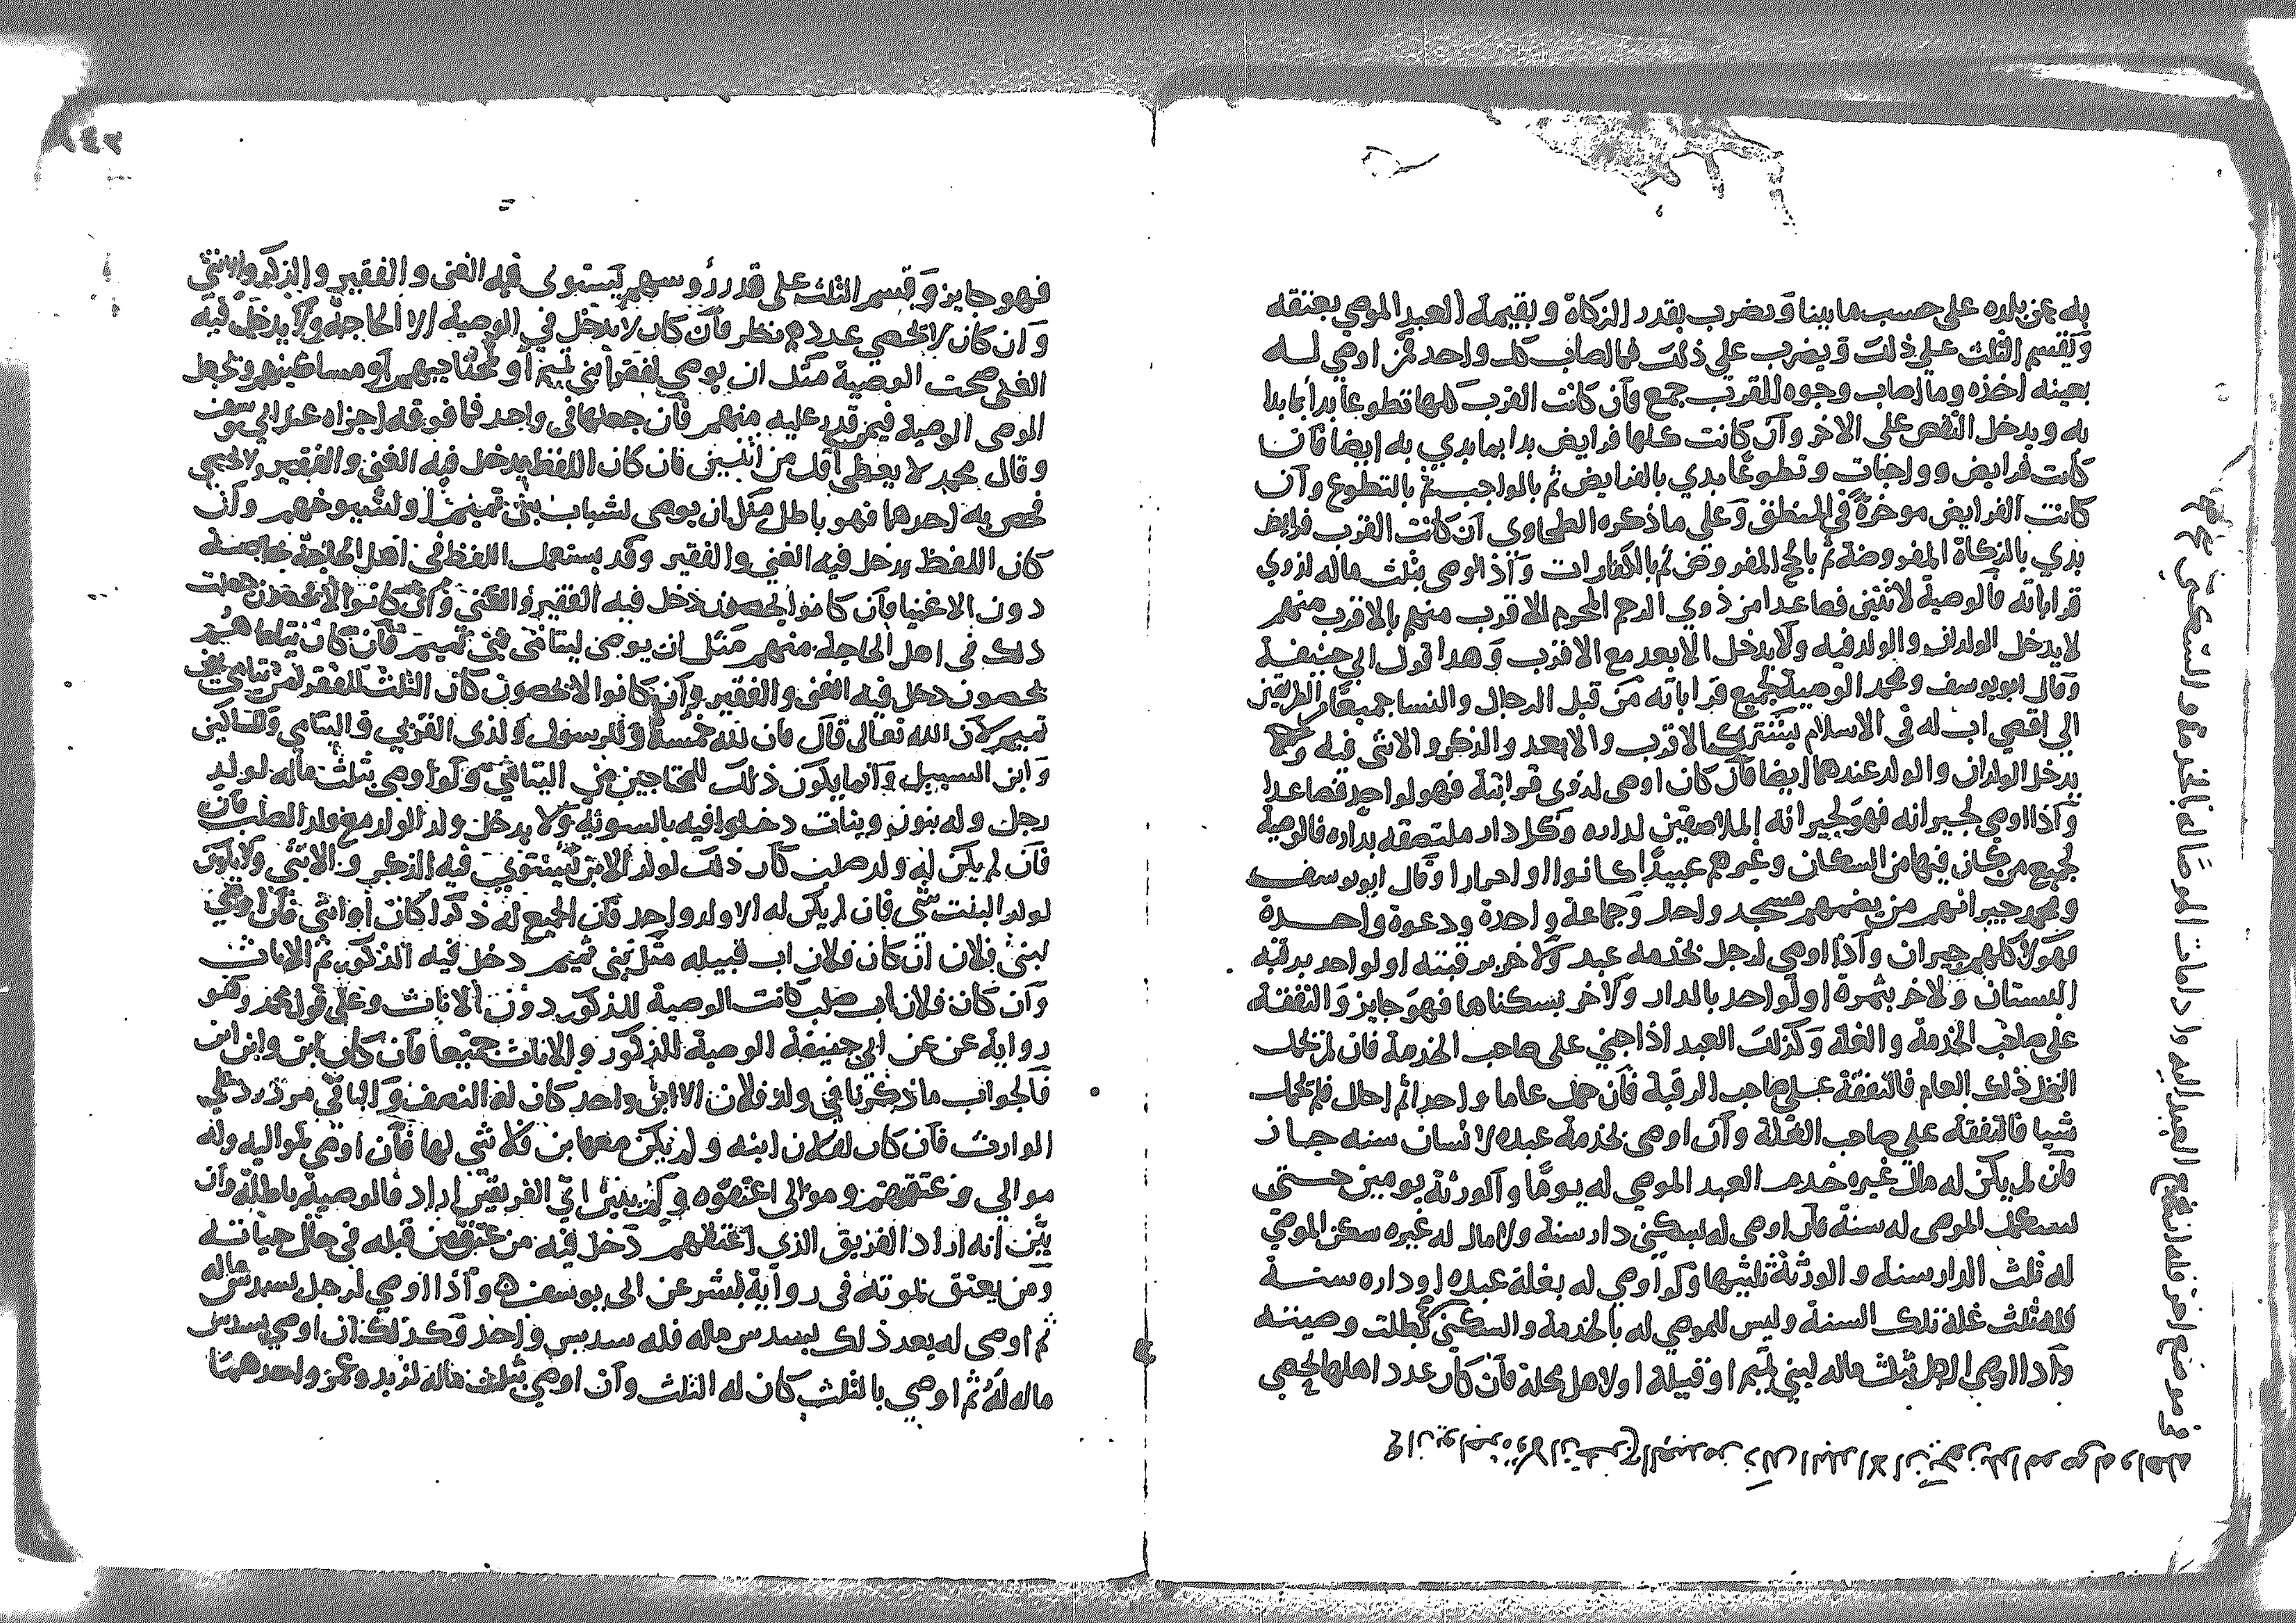 به عن بلده على حسب ما بينا ويضرب بقدر الزكاة وبقيمة العبد الموصي بعتقه
وتقسم الثلث على ذلك ويضرب على ذلك فما اصاب كل واحد ممن اوصي له
بعينه اخذه وما اصاب وجوه القرب جمع فان كانت القرب كلها تطوعا بدا بما بدا
به ويدخل النقص على الاخر وان كانت كلها فرايض بدا بما بدي به ايضا فان
كانت فرايض وواجبات وتطوعا بدي بالفرايض ثم بالواجب ثم بالتطوع وان
كانت الفرايض موخرة في المنطق وعلى ما ذكره الطحاوي ان كانت القرب فرايض
بدي بالزكاة المفروضة ثم بالحج المفروض ثم بالكفارات واذا اوصى بثلث ماله لذوي
قراباته فالوصية لاثنين فصاعدا من ذوي الرحم المحرم الاقرب منهم بالاقرب منهم
لا يدخل الوالدان والولد فيه ولا يدخل الابعد مع الاقرب وهذا قول ابي حنيفة
وقال ابو يوسف ومحمد الوصية لجميع قراباته من قبل الرجال والنسا جميعا من الطرفين
الى اقصى اب له في الاسلام يشترك الاقرب والابعد والذكر والانثى فيه ولا
يدخل الوالدان والولد عندهما ايضا فان كان اوصى لذوي قرابته فهو لواحد فصاعدا
واذا اوصي لجيرانه فهو لجيرانه الملاصقين لداره وكل دار ملتصقه بداره فالوصية
لجميع من كان فيها من السكان وغيرهم عبيدا كانوا او احرارا وقال ابو يوسف
ومحمد جيرانهم من يضمهم مسجد واحد وجماعة واحدة ودعوة واحدة
فهولا كلهم جيران واذا اوصي لرجل بخدمه عبد ولاخر برقبته او لواحد برقبة
البستان ولاخر بثمرة او لواحد بالدار ولاخر بسكناها فهو جايز والنفقة
على صاحب الخدمة والغلة وكذلك العبد اذا جني على صاحب الخدمة فان لم تحمل
النخل ذلك العام فالنفقة على صاحب الرقبة فان حمل عاما واحدا ثم احال فلم يحمل
شيا فالنفقه على صاحب الغلة وان اوصى بخدمة عبده لانسان سنه جاز
فان لم يكن له مال غيره خدم العبد الموصي له يوما والورثة يومين حتى
يستكمل الموصى له سنة فان اوصى له بسكنى دار سنة ولا مال له غيره سكن الموصي
له ثلث الدار سنة والورثة ثلثيها ولو اوصي له بغلة عبده او داره سنة
فله ثلث غلة تلك السنة وليس للموصي له بالخدمة والسكنى بطلت وصيته
واذا اوصي الرجل بثلث ماله لبني تميم او قبيلة او لاهل محلة فان كان عدد اهلها يحصي
فهو جايز ويقسم الثلث على قدر رؤوسهم يستوى فيه الغنى والفقير والذكر والانثى
وان كان لا يحصي عددهم نظر فان كان لا يدخل في الوصية الا الحاجة ولا يدخل فيه
الغني صحت الوصية مثل ان يوصي لفقرا بني تميم او محتاجيهم او مساكينهم وتجعل
الموصى الوصية فيمن قدر عليه منهم فان جعلها في واحد فما فوقه اجزاه عند ابي يوسف
وقال محمد لا يعطى اقل من اثنين فان كان اللفظ يدخل فيه الغني والفقير ولا يحصي
فخص به احدهما فهو باطل مثل ان يوصي لشباب بني تميم او لشيوخهم وان
كان اللفظ يدخل فيه الغني والفقير وقد يستعمل اللفظ في اهل الحاجة خاصة
دون الاغنيا فان كانوا يحصون دخل فيه الفقير والغني وان كانوا لا يحصون جعلت
ذلك في اهل الحاجة منهم مثل ان يوصى ليتامى بني تميم فان كان يتاماهم
يحصون دخل فيه الغنى والفقير وان كانوا لا يحصون كان الثلث للفقرا من يتامى بني
تميم لان الله تعالى قال فان لله خمسه وللرسول ولذى القربي واليتامى والمساكين
وابن السبيل وانما يكون ذلك للمحتاجين من اليتامى ولو اوصى بثلث ماله لولد
رجل وله بنون وبنات دخلوا فيه بالسوية ولا يدخل ولد الولد مع ولد الصلب
فان لم يكن له ولد صلب كان ذلك لولد الابن يستوي فيه الذكر والانثى ولا يكون
لولد البنت شي فان لم يكن له الا ولد واحد فان الجميع له ذكرا كان او انثى فان اوصي
لبني فلان ان كان فلان اب قبيله مثل بني تميم دخل فيه الذكور ثم الاناث
وان كان فلان اب صلب كانت الوصية للذكور دون الاناث وعلى قول محمد وهو
رواية عن ابي حنيفة الوصية للذكور والاناث جميعا فان كان ابن وابن ابن
فالجواب ما ذكرنا في ولد فلان الا ابن واحد كان له النصف والباقي مردود على
الوارث فان كان لفلان ابنه ولم يكن معها ابن فلا شي لها فان اوصي لمواليه وله
موالي اعتقهم وموالى اعتقوه ولم يبين اي الفريقين اراد فالوصية باطلة وان
بين انه اراد الفريق الذي اعتقهم دخل فيه من عتق من قبله في حال حياته
ومن يعتق بموته في رواية بشر عن ابي يوسف واذا اوصي لرجل بسدس ماله
ثم اوصى له بعد ذلك بسدس ماله فله سدس واحد وكذلك ان اوصي بسدس
ماله له ثم اوصي بالثلث كان له الثلث وان اوصي بثلث ماله لزيد وعمرو واحدهما